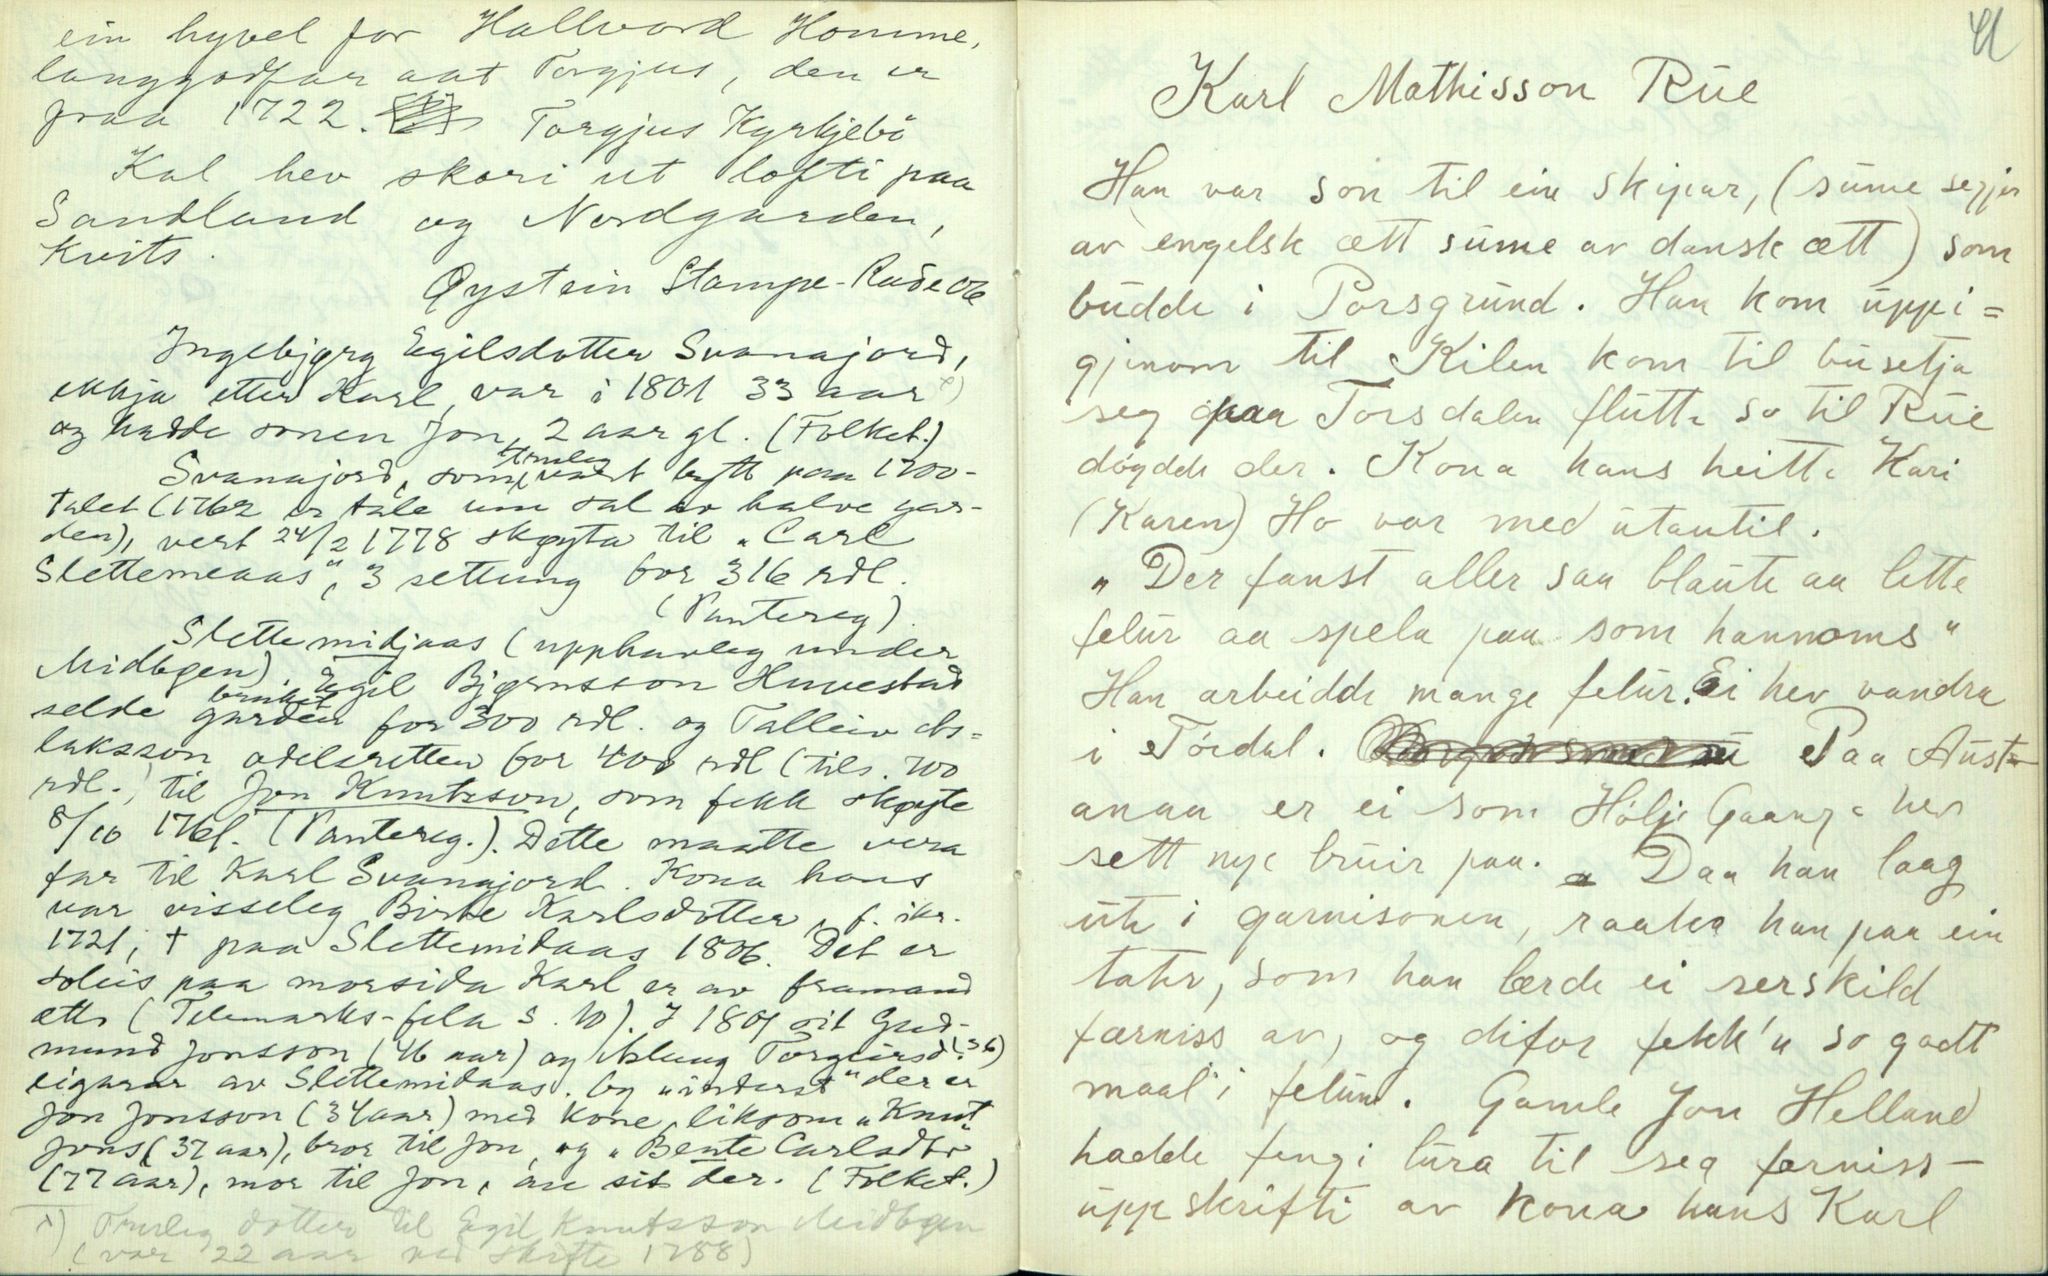 ein hyvel for Hallvord Homme,
langgodfar aat Torgjus, den er
fraa 1722. Torgjus Kyrkjebö
Kal hev skori ut lofti paa
Sandland og Nordgarden,
Kvits.
Øystein Stampe-Rade
Ingebjørg Egilsdotter Svanajord,
ekkja etter Karl, var i 1801 33 aar x)
og hadde sonen Jon, 2 aar gl. (Folket.)
Svanajord, som truleg vart bytt paa 1700-
talet (1762 er tale um sal av halve gar-
den), vert 24/2 1778 skøyta til „Carl
Slettemeaas", 3 settung for 316 rdl.
(Pantereg).
Slettemidjaas (upphavleg under
Midbøen). Egil Bjørnsson Huvestad
selde bruket garden for 300 rdl. og Talleiv As-
laksson odelsretten for 400 rdl (tils. 700
rdl.) til Jon Knutsson, som fekk skøyte
8/10 1761. (Pantereg.). Dette maatte vera
far til Karl Svanajord. Kona hans
var visseleg Birte Karlsdotter, f. ikr.
1721, † paa Slettemidaas 1806. Det er
soleis paa morsida Karl er av framand
ætt (Telemarks-fela s. 10). I 1801 sit Gud-
mund Jonsson (46 aar) og Aslaug Torgeirsd. (36)
eigarar av Slettemidaas. Og „inderst" der er
Jon Jonsson (34 aar) med kone, liksom „Knut
Jons (37 aar), bror til Jon, og „Bente Carlsdtr
(77 aar), mor til Jon, au sit der. (Folket.)
x) Truleg dotter til Egil Knutsson Midbøen
(var 22 aar ved skifte 1788)
41
Karl Mathisson Rue
Han var son til ein skipar, (sume segjer
av engelsk ætt sume av dansk ætt) som
budde i Porsgrund. Han kom uppi=
gjenom til Kilen kom til busetja
seg paa Torsdalen flutte so til Rue
døydde der. Kona hans heitte Kari
(Karen) Ho var med utantil.
„Der fanst aller saa blaute aa lette
felur aa spela paa som hannoms"
Han arbeidde mange felur. Ei hev vandra
i Tördal. Paa Aust-
anaa er ei som Hölje Gaara hev
sett nye bruir paa. Daa han laag
ute i garnisonen, raaka han paa ein
tatr, som han lærde ei serskild
færniss av, og difor fekk'n so godt
maal i felune. Gamle Jon Helland
hadde fengi lura til seg færniss-
uppskrifti av kona hans Karl